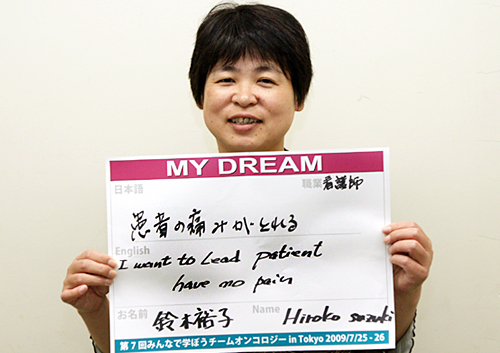 MY DREAM
日本語 職業 看護師
患者の痛みがとれる
English
I want to Lead patient
have no pain
お名前 鈴木裕子 Name Hiroko sazuki
第7回みんなで学ぼうチームオンコロジー in Tokyo 2009/7/25 - 26